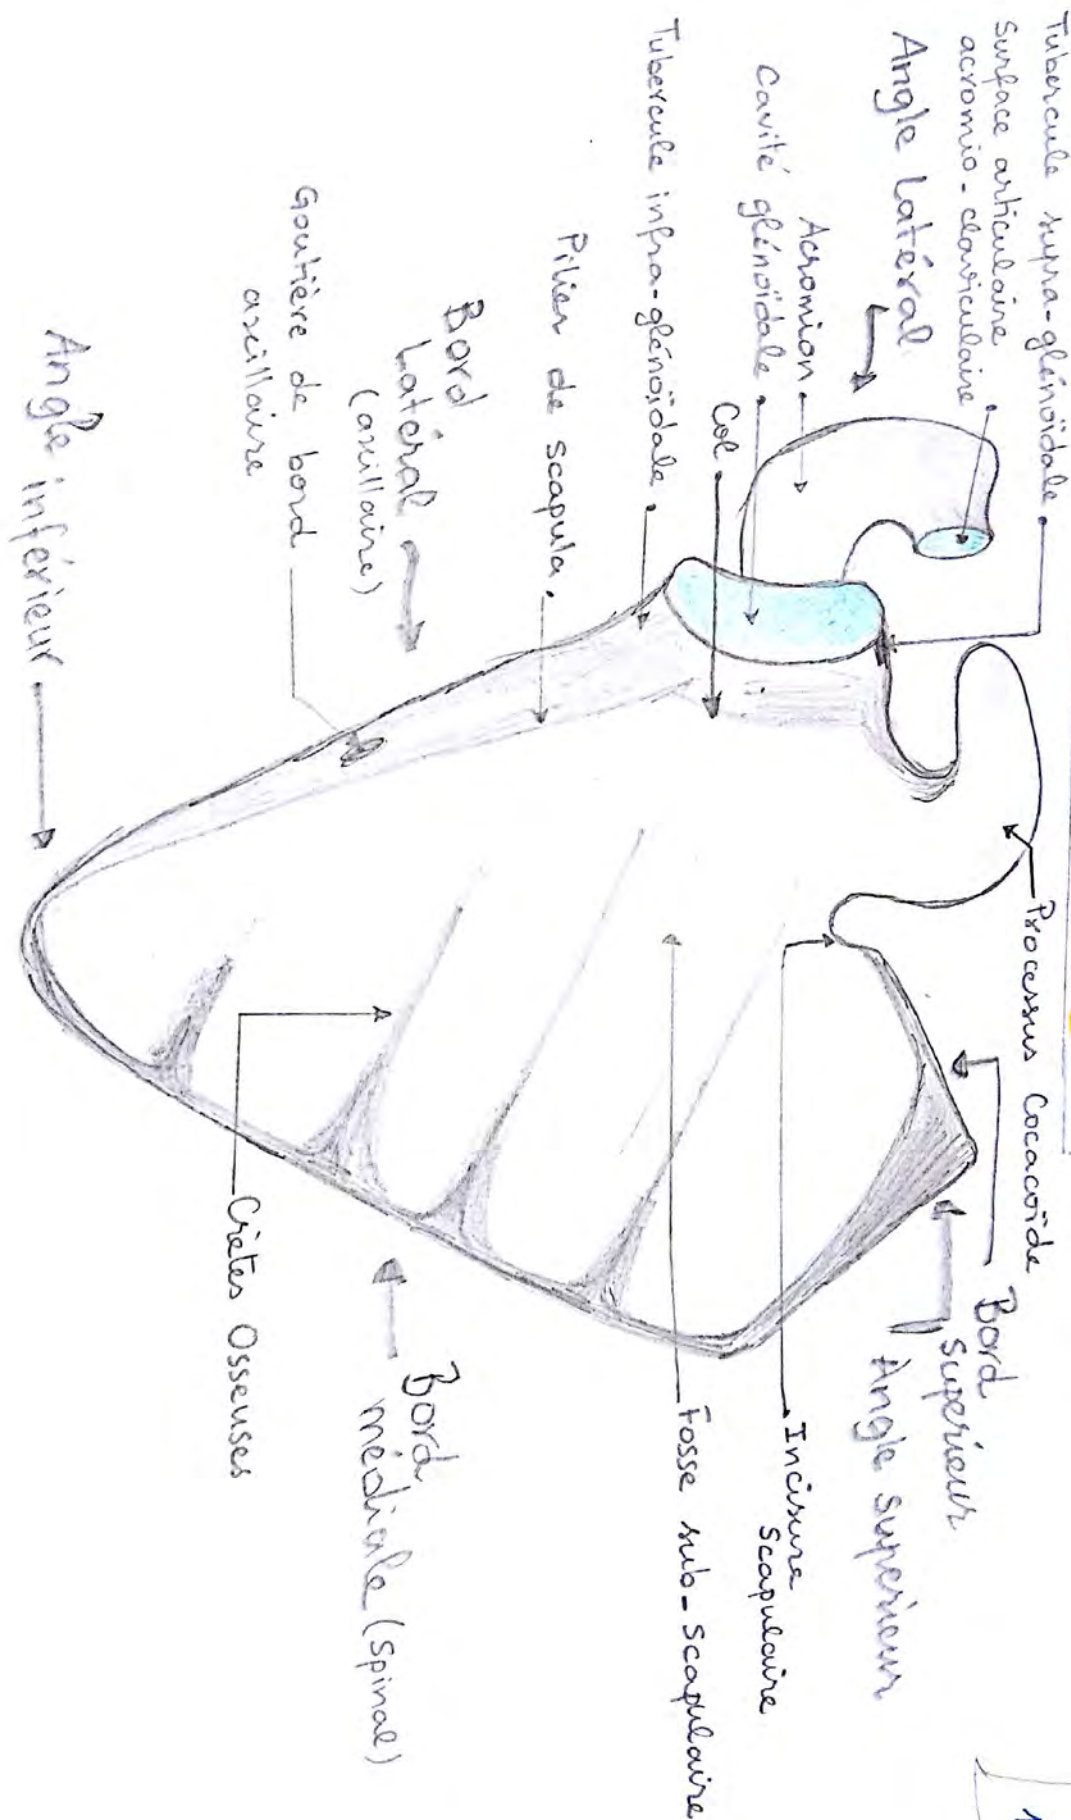 Tubercule supra-glénoïdale
Surface articulaire
acromio-claviculaire
Angle Latéral
Acromion
Cavité glénoïdale
Col
Tubercule infra-glénoïdale
Pilier de scapula
Bord
Latéral
(axcillaire)
Goutière de bord
axcillaire
Angle inférieur
Processus Cocacoïde
Bord
Superieur
Angle Superieur
Incisure
Scapulaire
Fosse sub-Scapulaire
Bord
médiale (Spinal)
Crêtes Osseuses